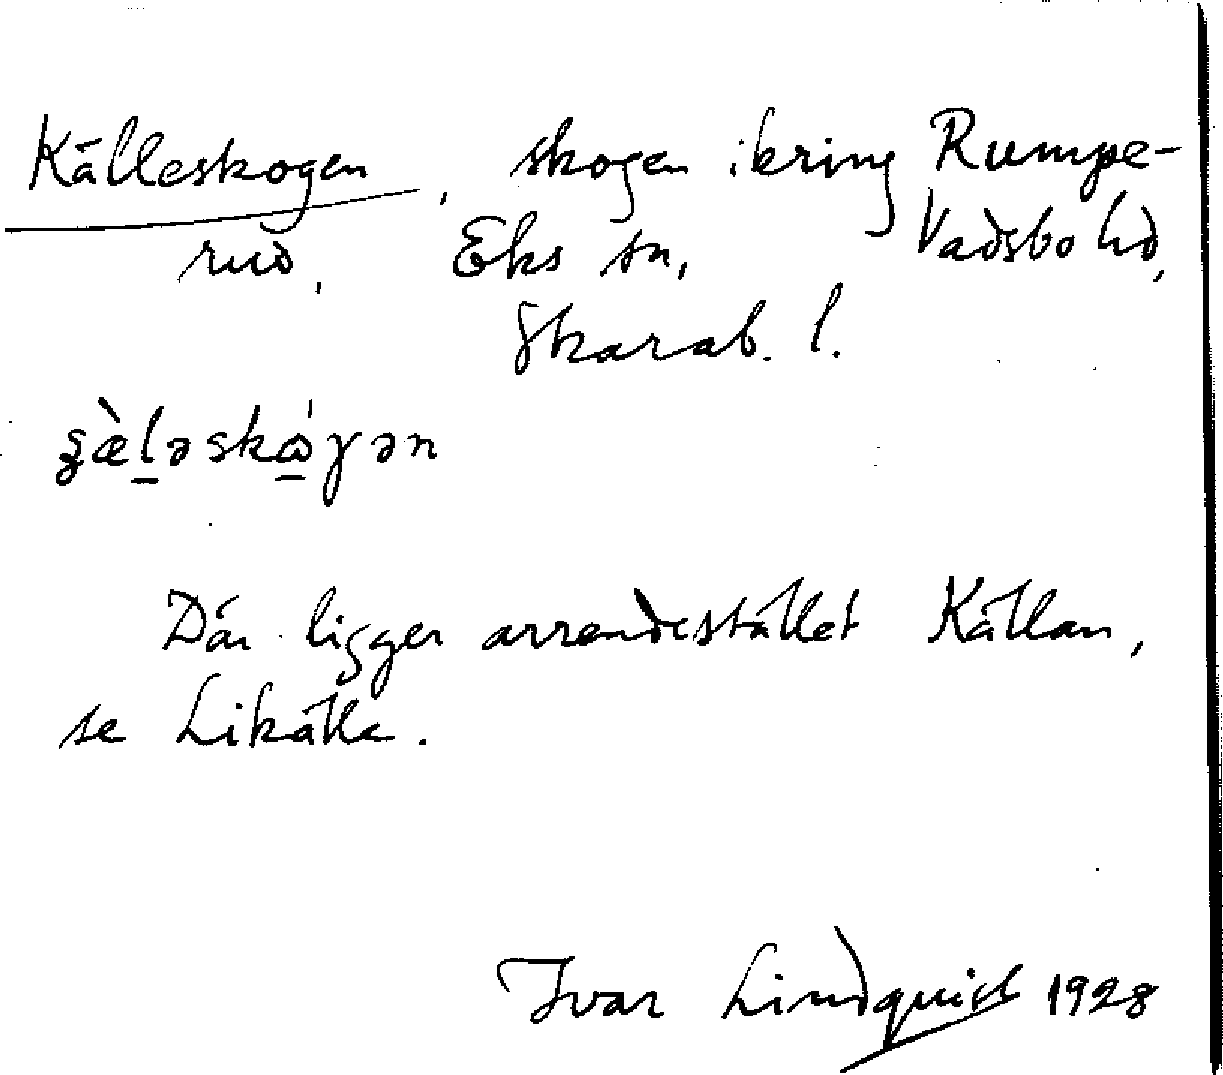 Källeskogen, skogen ikring Rumpe-
rud, Eks sn, Vadsbo hd,
Skarab. l.
ʂæ̀l̠əskώ̠γən
Där ligger arrendestället Källan,
se Likälla.
Ivar Lindquist 1928